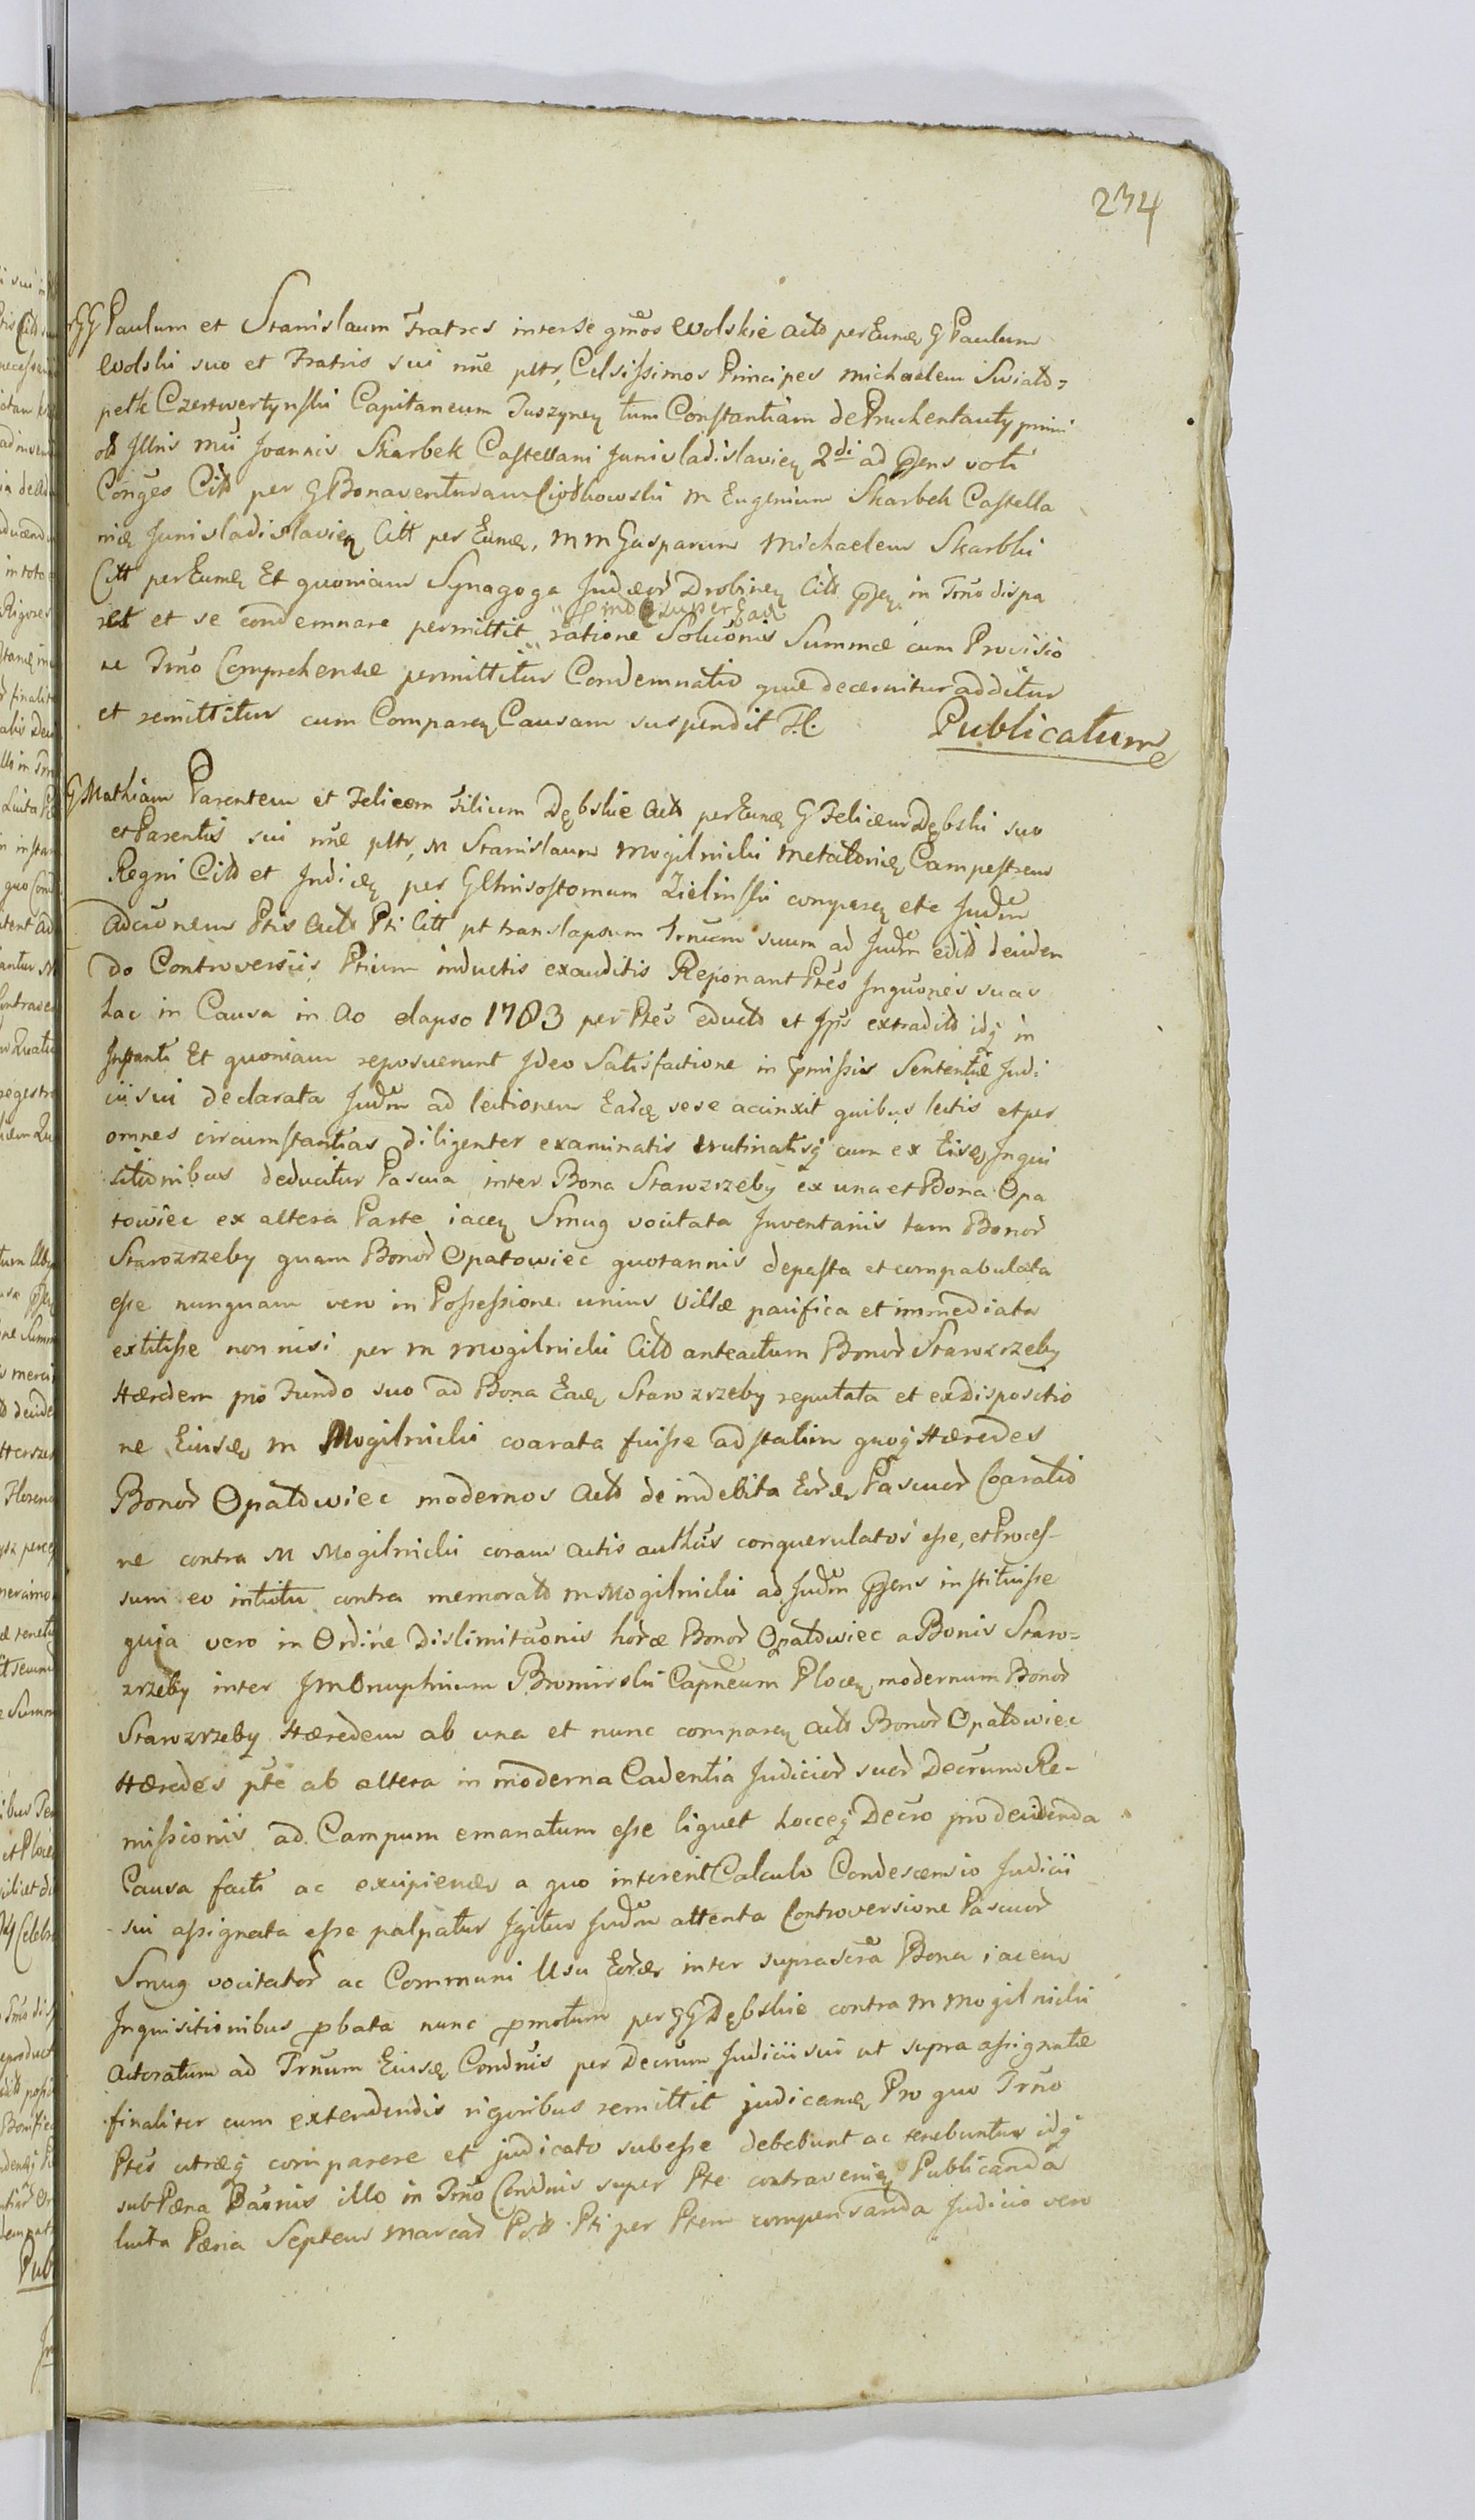 234
GG Paulum et Stanislaum Fratres inter se gm̃os Wolskie Actō per Eunđ G Paulum
Wolski suo et Fratris sui nñe pltr, Celsissimos Principes Michaelem Swiato=
pelk Czertwertynski Capitaneum Tuszyneɳ tum Constantiam de primi
ob Jllris Mci Joannis Skarbek Castellani Junivladislavieɳ 2di ad pñs voti
Conges Citō per G Bonaventuram Ciołkowski M Eugenium Skarbek Castella
nidę Junivladislavieɳ Citt per Eundę, MM Gasparum Michaelem Skarbki
Citt per Eumdę Et quoniam Synagoga Judæoř Drobineɳ Citt in Trñō dispa
ret et se condemnare permittit ratione Soluōnis Summæ cum Provisio
ne Trñō Comprehensæ permittitur Condemnatio quæ decernitur additur
et remittitur cum Compareɳ Causam suspendit F.C. Publicatum
G Mathiam Parentem et Felicem Filium Dębskie Actō per Eundę G Felicem Dębski suo
et Parentis sui nñe pltr, M Stanislaum Mogilnicki Metatoriæ Campestrem
Regni Citō et Judicię per G Chrisostomum Zielinski compareɳ etc Judm̃
Adcionem Ptis Actō Pti Citt pt translapsum Trnum suum ad Judm̃ editō deciden
do Controversiis Ptium inductis exauditis Reponant Ptes Inquones suas
hac in Causa in Ao elapso 1783 per Ptes eductō et Jps extraditō idq in
Instanti Et quoniam reposuerunt Jdeo Satisfactione in pmissis Sententiæ Judi
cii sui declarata Judm̃ ad lectionem Eardę sese accinxit quibus lectis et per
omnes circumstantias diligenter examinatis trutinatisq cum ex Eisdę Inqui
sitionibus deducitur Pascua inter Bona Starozrzeby ex una et Bona Opa
towiec ex altera Parte iaceɳ Smug vocitata Inventariis tam Bonoř
Starozrzeby quam Bonoř Opatowiec quotannis depasta et compabulata
esse nunquam vero in Possessione unius Villæ pacifica et immediata
extitisse non nisi per M Mogilnicki Citō anteactum Bonoř Starozrzeby
Hæredem pro Fundo suo ad Bona Eadę Starozrzeby reputata et ex dispositio
ne Eiusdę M Mogilnicki coarata fuisse ad statim quoq Hæredes
Bonoř Opatowiec modernos Actō de indebita Eordę Pascuoř Coaratio
ne contra M Mogilnicki coram Actis authcis conquerulatos esse, et Proces-
sum eo intuitu contra memoratō M Mogilnicki ad Judm̃ pñs instituisse
quia vero in Ordine Dislimitaōnis horæ Bonoř Opatowiec a Bonis Staro=
zrzeby inter JM Onuphrium Bromirski Capneum Ploceɳ modernum Bonoř
Starozrzeby Hæredem ab una et nunc compareɳ Actō Bonoř Opatowiec
Hæredes pte ab altera in moderna Cadentia Judicioř suoř Decrum Re-
missionis ad Campum emanatum esse liquet hocceq Decro pro decidenda
Causa facti ac excipiendę a quo intererit Calculo Condescensio Judicii
sui assignata esse palpatur Igitur Judm̃ attenta Controversione Pascuoř
Smug vocitatoř ac Communi Usu Eordę inter suprascra Bona iacen
Inquisitionibus pbata nunc pmotum per GG Dębskie contra M Mogilnicki
Actoratum ad Trnum Eiusdę Condnis per Decrum Judicii sui ut supra assignatæ
finaliter cum extendendis rigoribus remittit judicandę Pro quo Trñō
Ptes utræq comparere et judicato subesse debebunt ac tenebuntur idq
sub Pæna Bannis illo in Trñō Condnis super Pte contravenieɳ Publicanda
luita Pæna Septem Marcař Poll Pti per Ptem compensanda Judicio vero